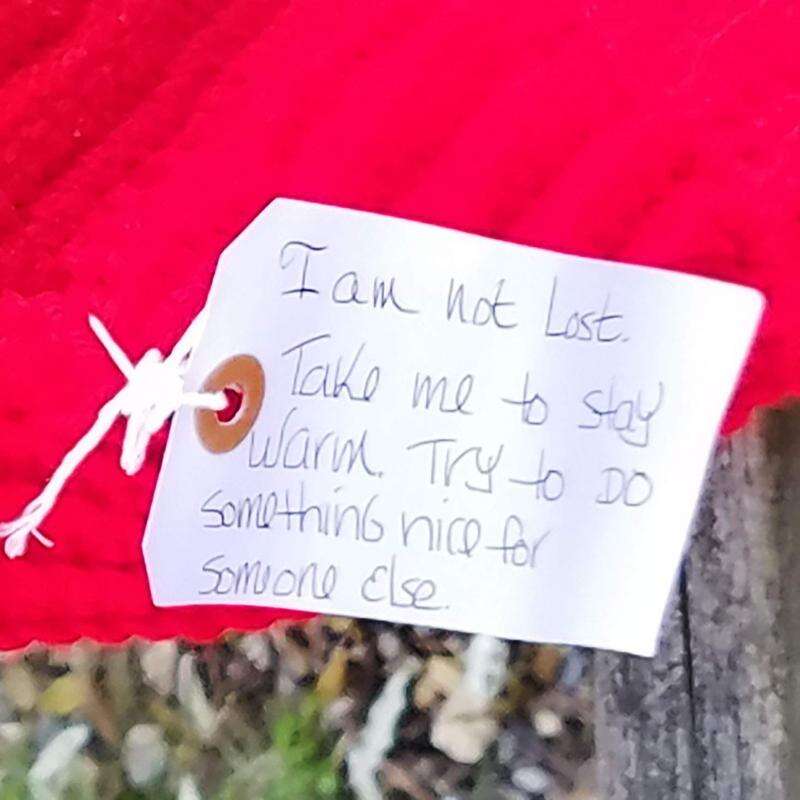 I am not Lost.
Take me to stay
Warm. Try to DO
something nice for
Someone else.